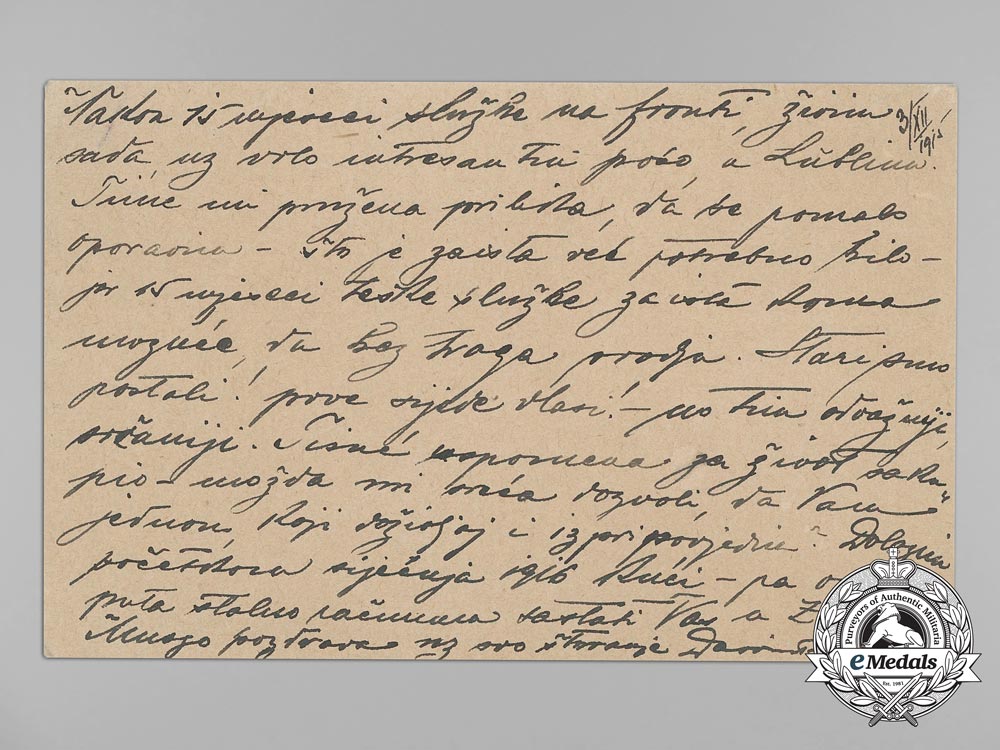 Nakon 15 mjeseci službe na fronti, živim
3/XII 1915
sada uz vrlo intresantni poso, u Lublinu.
Time mi pružena prilika, da se pomalo
oporavim – što je zaista već potrebno bilo –
jer 15 mjeseci teške službe zaista koma
moguće, da bez traga prodja. Stari smo
postali! prve sijede vlasi! – no tim odvažniji,
srčaniji. Tisuć uspomena za život saku-
pio – možda mi sreća dozvoli, da Vam
jednom koji doživljaj i izpripovjedim? Dolazim
početkom siječnja 1916 kući – pa
puta stalno računam sastati Vas u Z
Mnogo pozdrava uz svo štovanje
Purveyors of Authentic Militaria
eMedals
Est. 1981